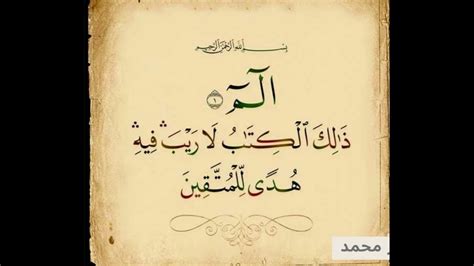 بِسْمِ اللَّهِ الرَّحْمَٰنِ الرَّحِيمِ
الٓمٓ ١
ذَٰلِكَ ٱلْكِتَٰبُ لَا رَيْبَ ۛ فِيهِ ۛ
هُدًى لِّلْمُتَّقِينَ
محمد